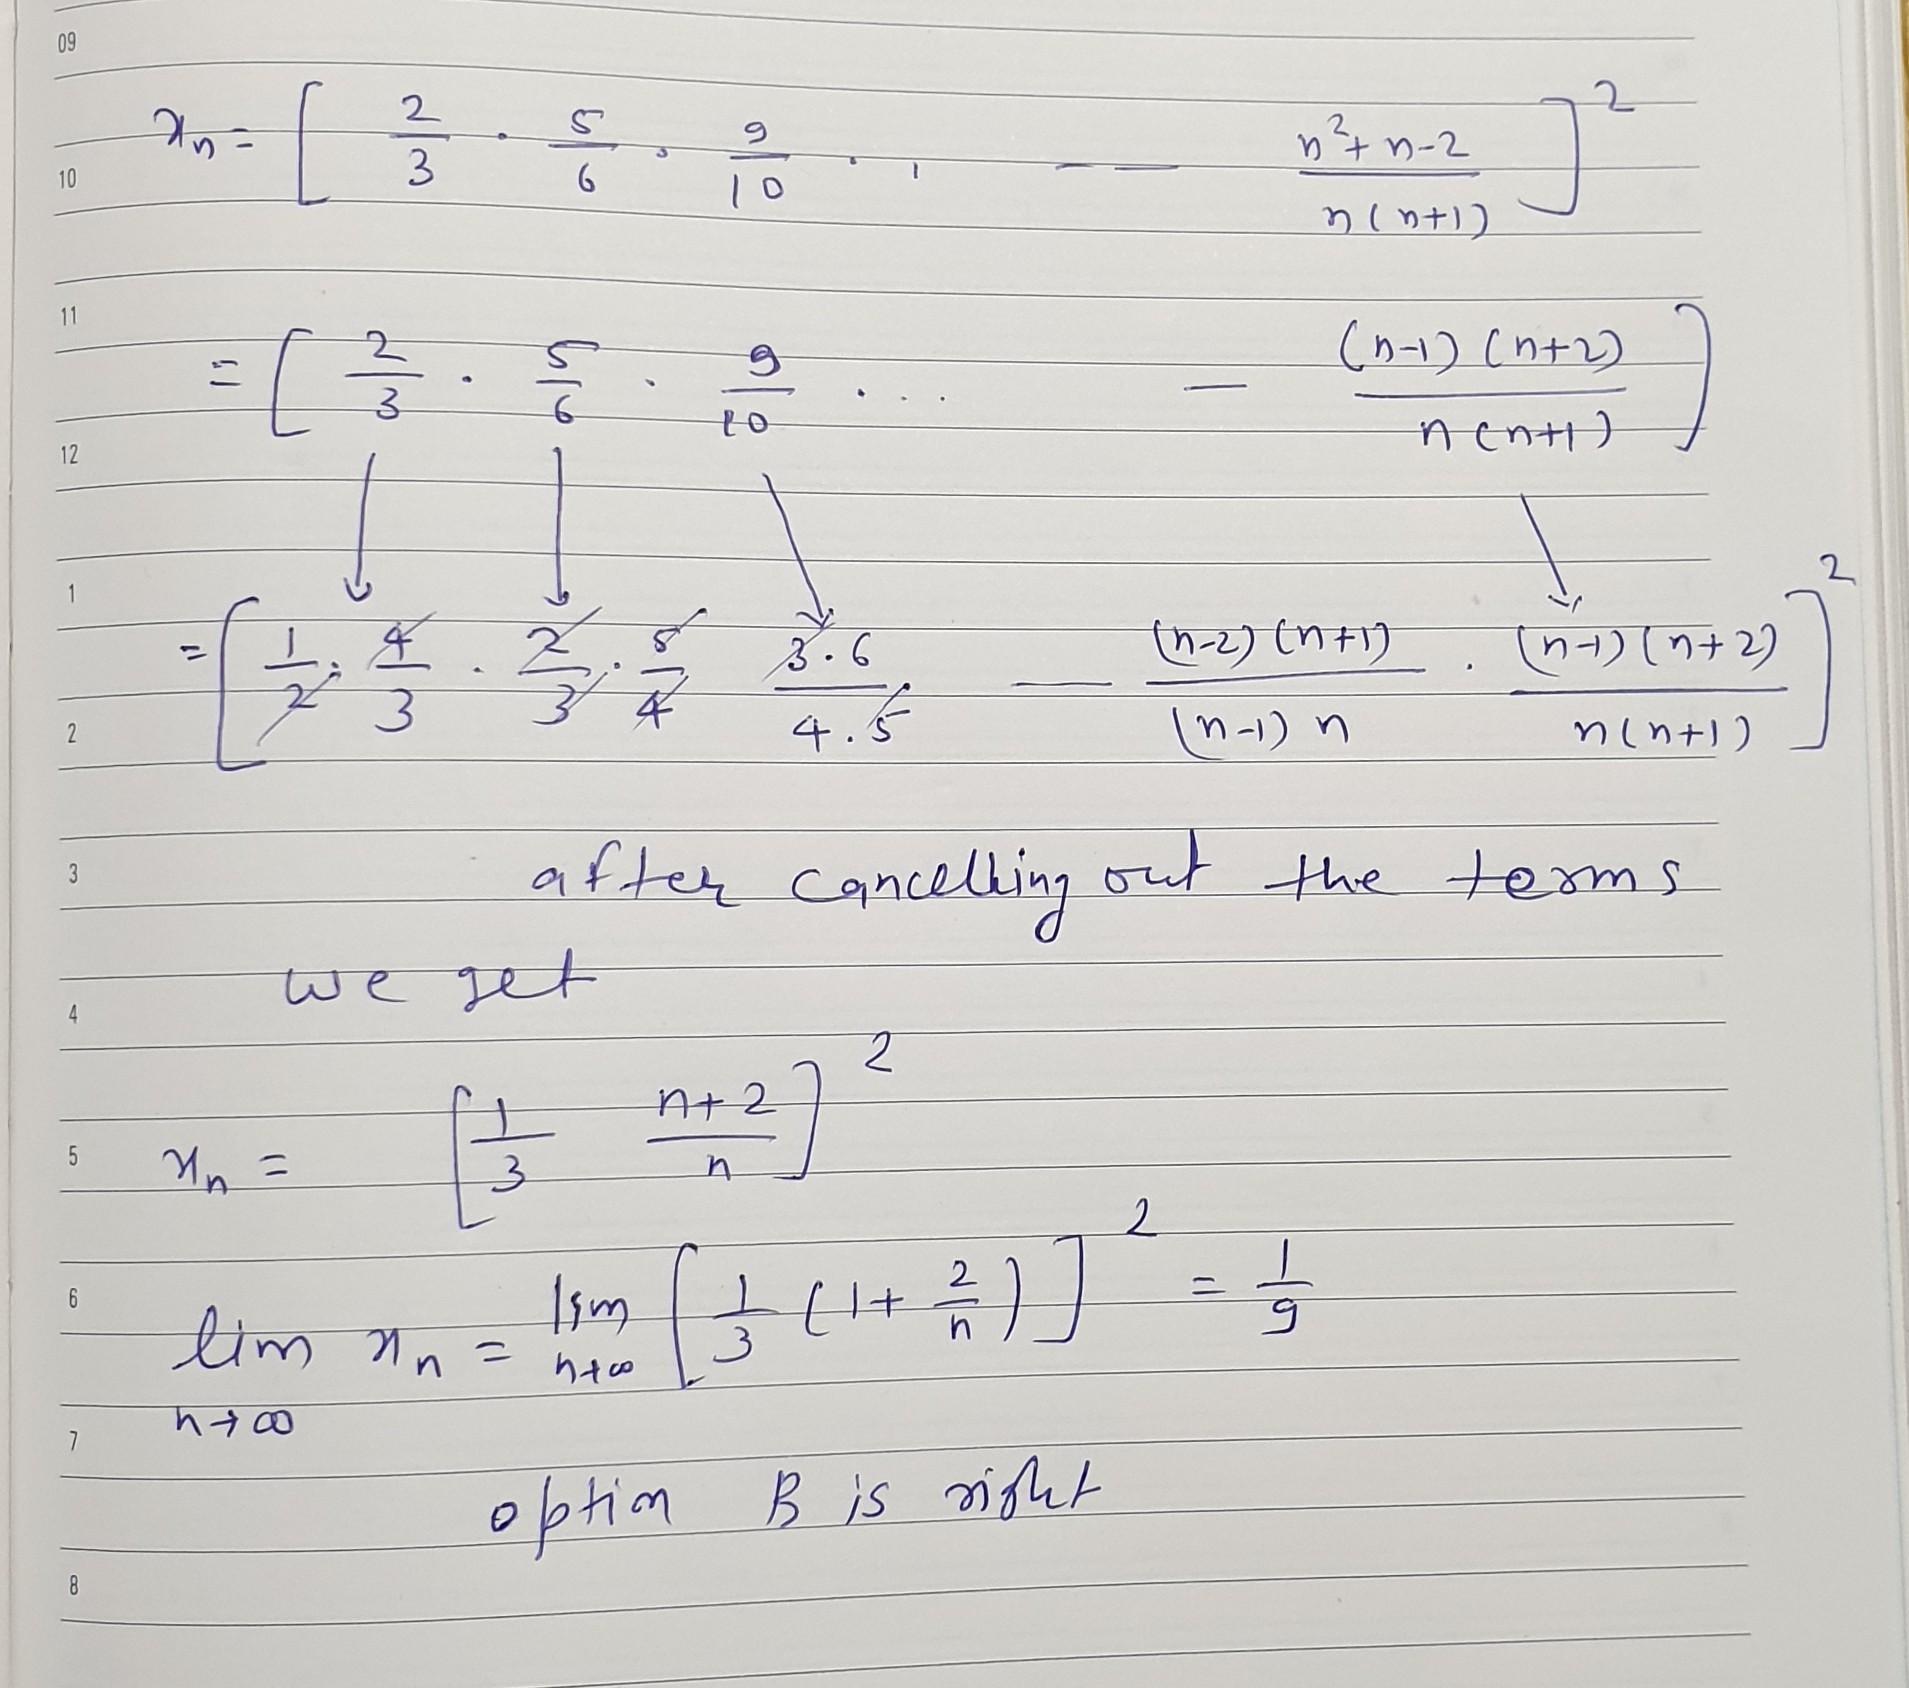 09
xₙ = [ 2/3 . 5/6 . 9/10 . . — — (n²+n-2)/(n(n+1)) ]²
10
11
= [ 2/3 . 5/6 . 9/10 . . . — ((n-1)(n+2))/(n(n+1)) ]
12
1
= [ 1/2 . 4/3 . 2/3 . 5/4 (3.6)/(4.5) . — ((n-2)(n+1))/((n-1)n) . ((n-1)(n+2))/(n(n+1)) ]²
2
3 after cancelling out the terms
we get
4
5 xₙ = [ 1/3 (n+2)/n ]²
6
lim n→∞ xₙ = lim n→∞ [ 1/3 (1+ 2/n) ]² = 1/9
7
optin B is right
8